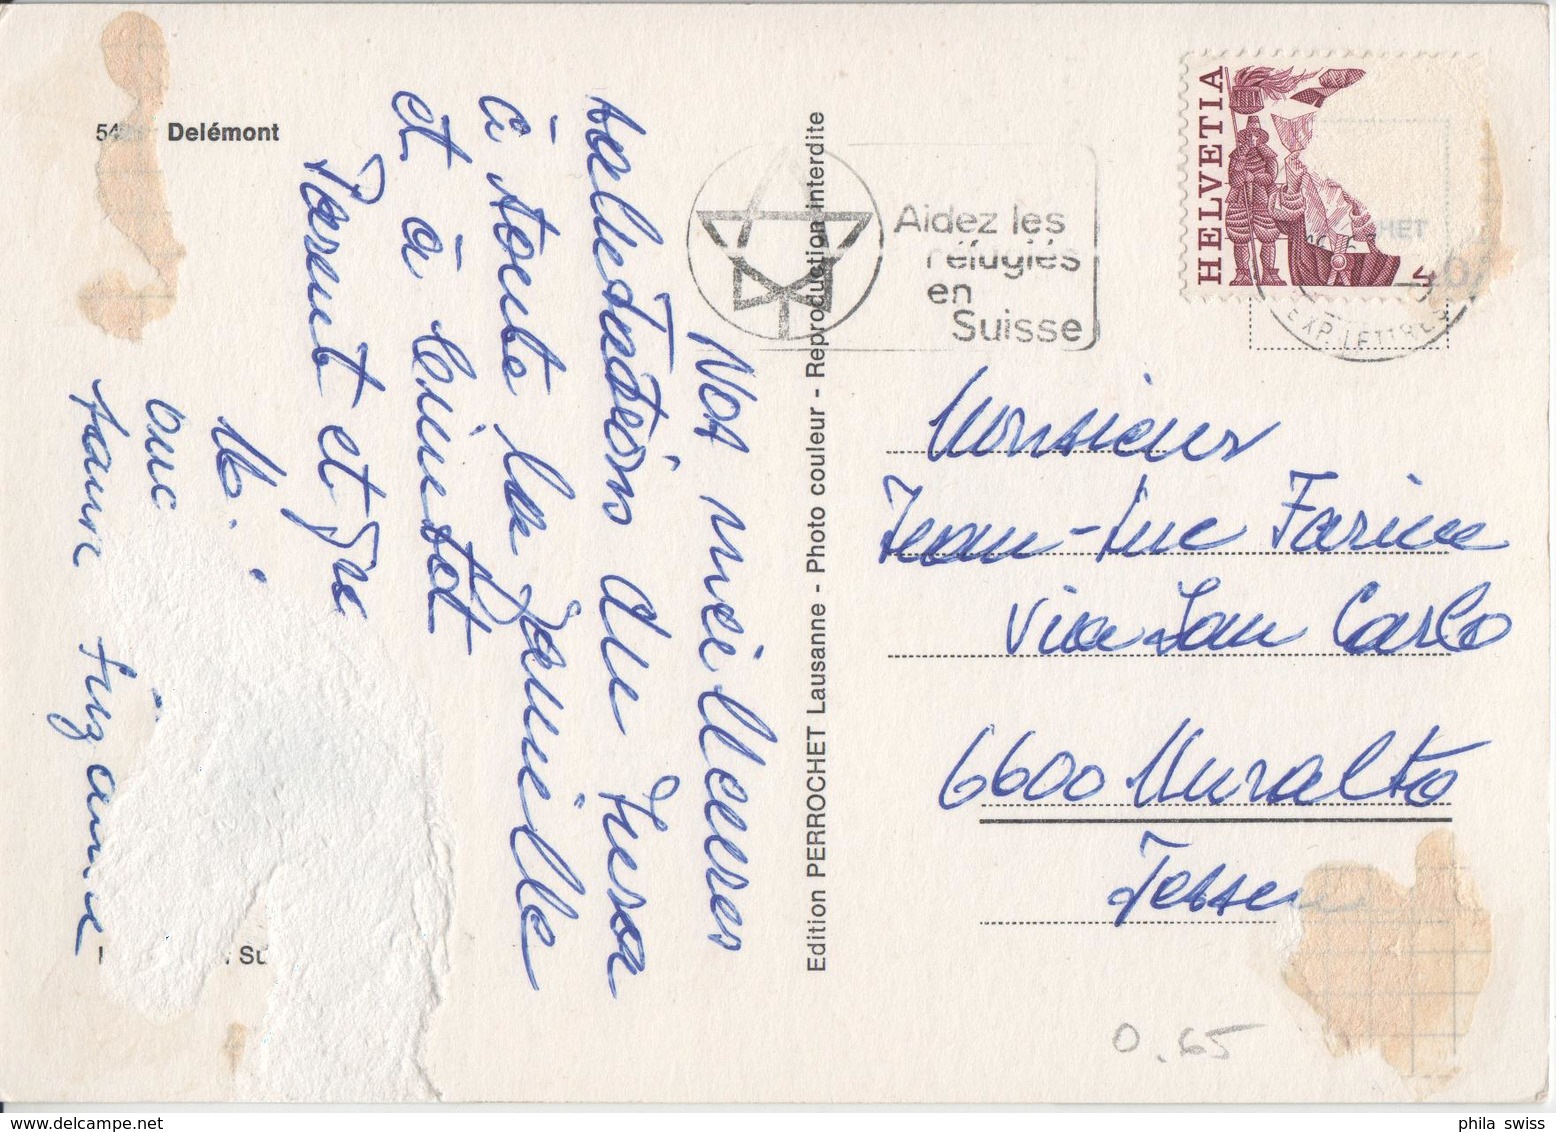 Delémont
Nos meilleures
salutations du Jura
à toute la famille
et à bientôt
Parent et
Suzanne
Edition PERROCHET Lausanne - Photo couleur - Reproduction interdite
Aidez les
réfugiés
en
Suisse
HELVETIA
EXP. LETTRES
Monsieur
Jean-Luc Farine
Via San Carlo
6600 Muralto
Tessin
0.65
phila swiss